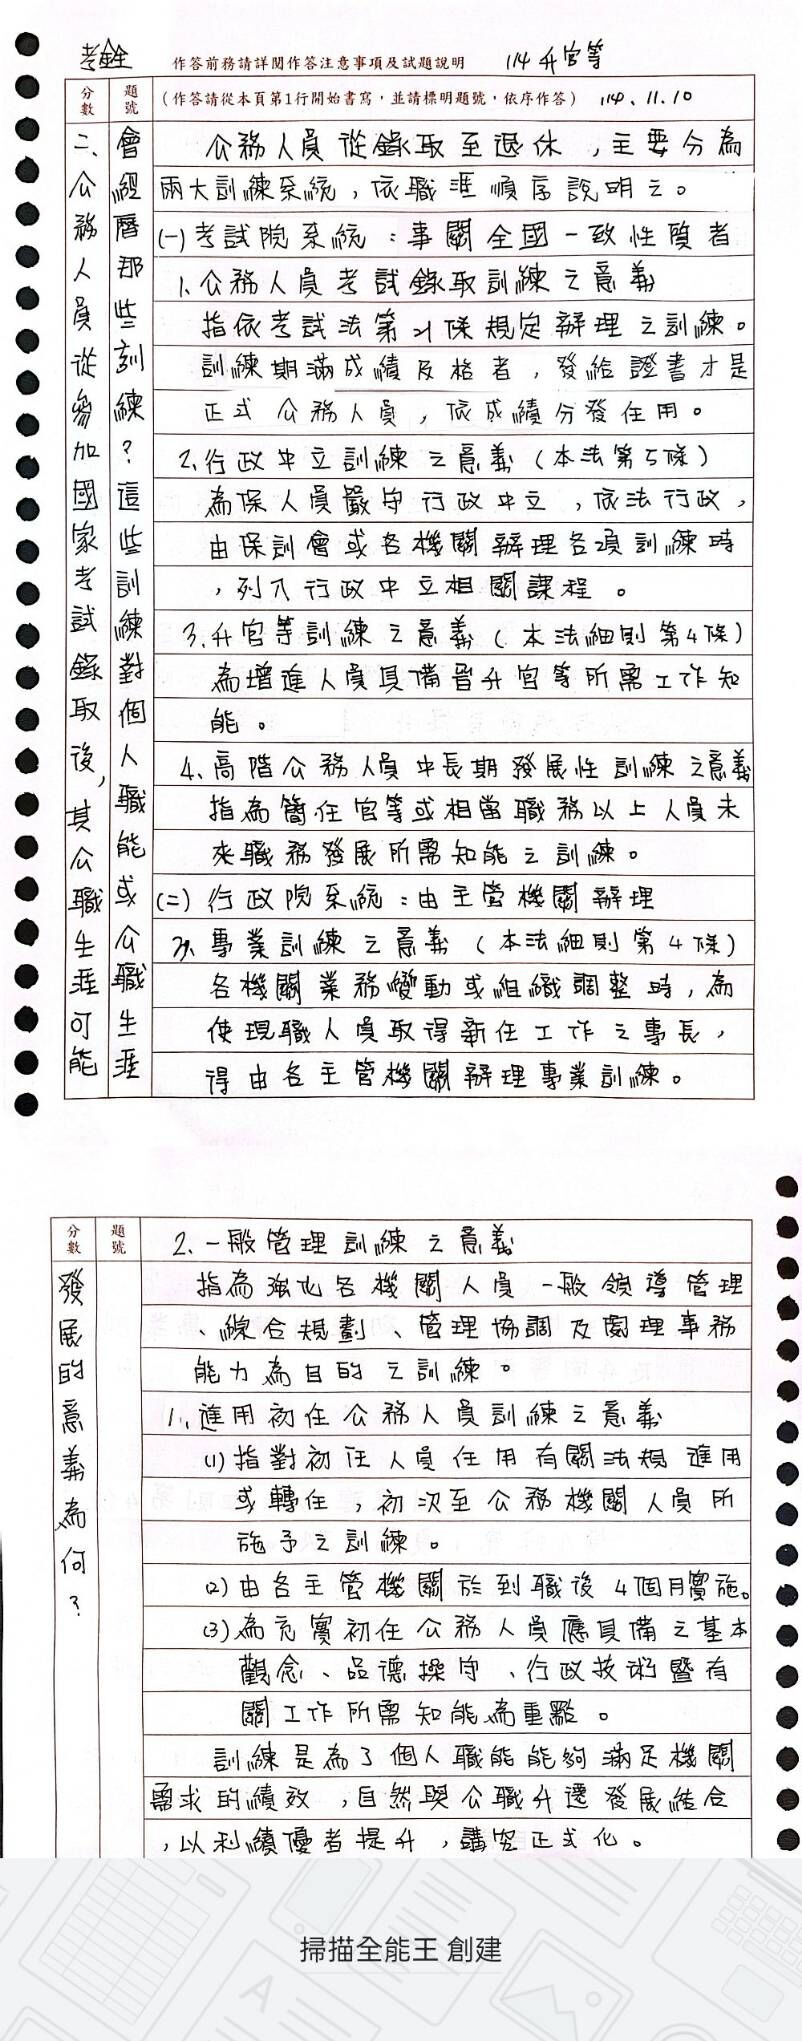 考銓
作答前務請詳閱作答注意事項及試題說明
114升官等
分數
題號
(作答請從本頁第1行開始書寫,並請標明題號,依序作答)
114、11.10
二、公務人員從參加國家考試錄取後,其公職生涯可能
會經歷那些訓練?這些訓練對個人職能或公職生涯
公務人員從錄取至退休,主要分為
兩大訓練系統,依職涯順序說明之。
(一)考試院系統:事關全國一致性質者
1、公務人員考試錄取訓練之意義
指依考試法第21條規定辦理之訓練。
訓練期滿成績及格者,發給證書才是
正式公務人員,依成績分發任用。
2、行政中立訓練之意義(本法第5條)
為保人員嚴守行政中立,依法行政,
由保訓會或各機關辦理各項訓練時
,列入行政中立相關課程。
3、升官等訓練之意義(本法細則第4條)
為增進人員具備晉升官等所需工作知
能。
4、高階公務人員中長期發展性訓練之意義
指為簡任官等或相當職務以上人員未
來職務發展所需知能之訓練。
(二)行政院系統:由主管機關辦理
專業訓練之意義(本法細則第4條)
各機關業務變動或組織調整時,為
使現職人員取得新任工作之專長,
得由各主管機關辦理專業訓練。
分數
題號
發展的意義為何?
2、一般管理訓練之意義
指為強化各機關人員一般領導管理
、綜合規劃、管理協調及處理事務
能力為目的之訓練。
1、進用初任公務人員訓練之意義
(1)指對初任人員任用有關法規進用
或轉任,初次至公務機關人員所
施予之訓練。
(2)由各主管機關於到職後4個月實施。
(3)為充實初任公務人員應具備之基本
觀念、品德操守、行政技術暨有
關工作所需知能為重點。
訓練是為了個人職能能夠滿足機關
需求的績效,自然與公職升遷發展結合
,以利績優者提升,講究正式化。
掃描全能王 創建